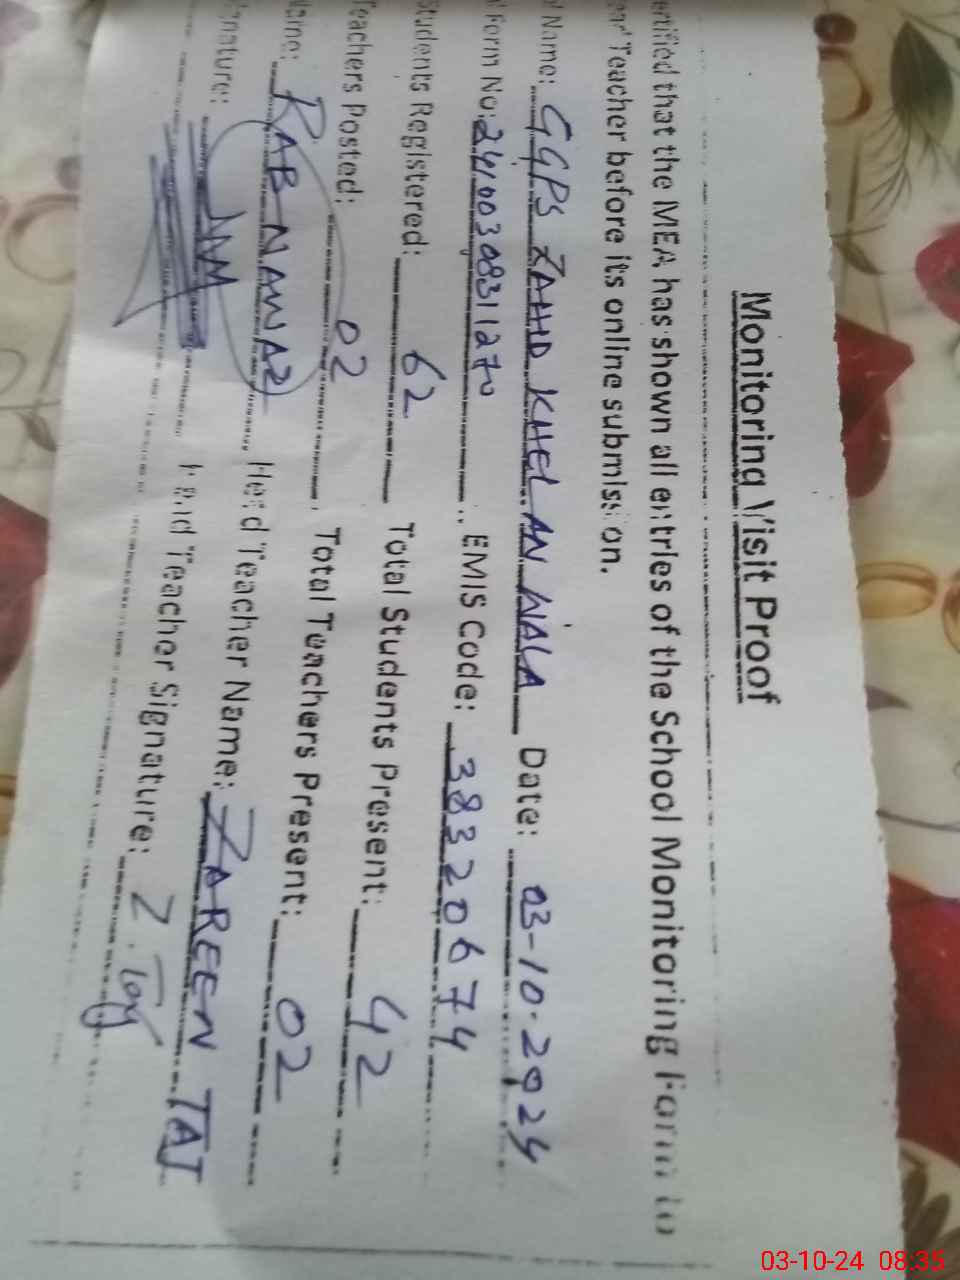 Monitoring Visit Proof
ertified that the MEA has shown all entries of the School Monitoring Form to
ead Teacher before its online submission.
l Name: GGPS ZAHID KHEL AN WALA Date: 03-10-2024
l Form No: EMIS Code: 38320674
Students Registered: 62 Total Students Present: 42
Teachers Posted: 02, Total Teachers Present: 02
Name: RAB NAWAZ Head Teacher Name: ZAREEN TAJ
ignature: Head Teacher Signature: Z. Taj
03-10-24 08:35